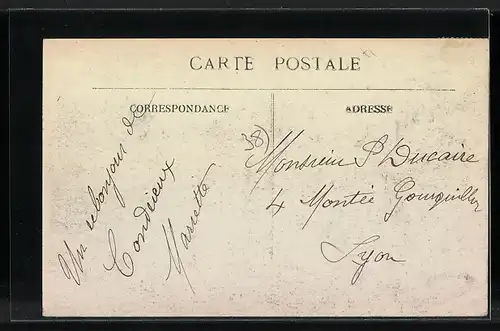 CARTE POSTALE
CORRESPONDANCE
Un rebonjour de
Condrieux
Mariette
ADRESSE
38)
Monsieur P Ducaire
4 Montée Gourguillon
Lyon